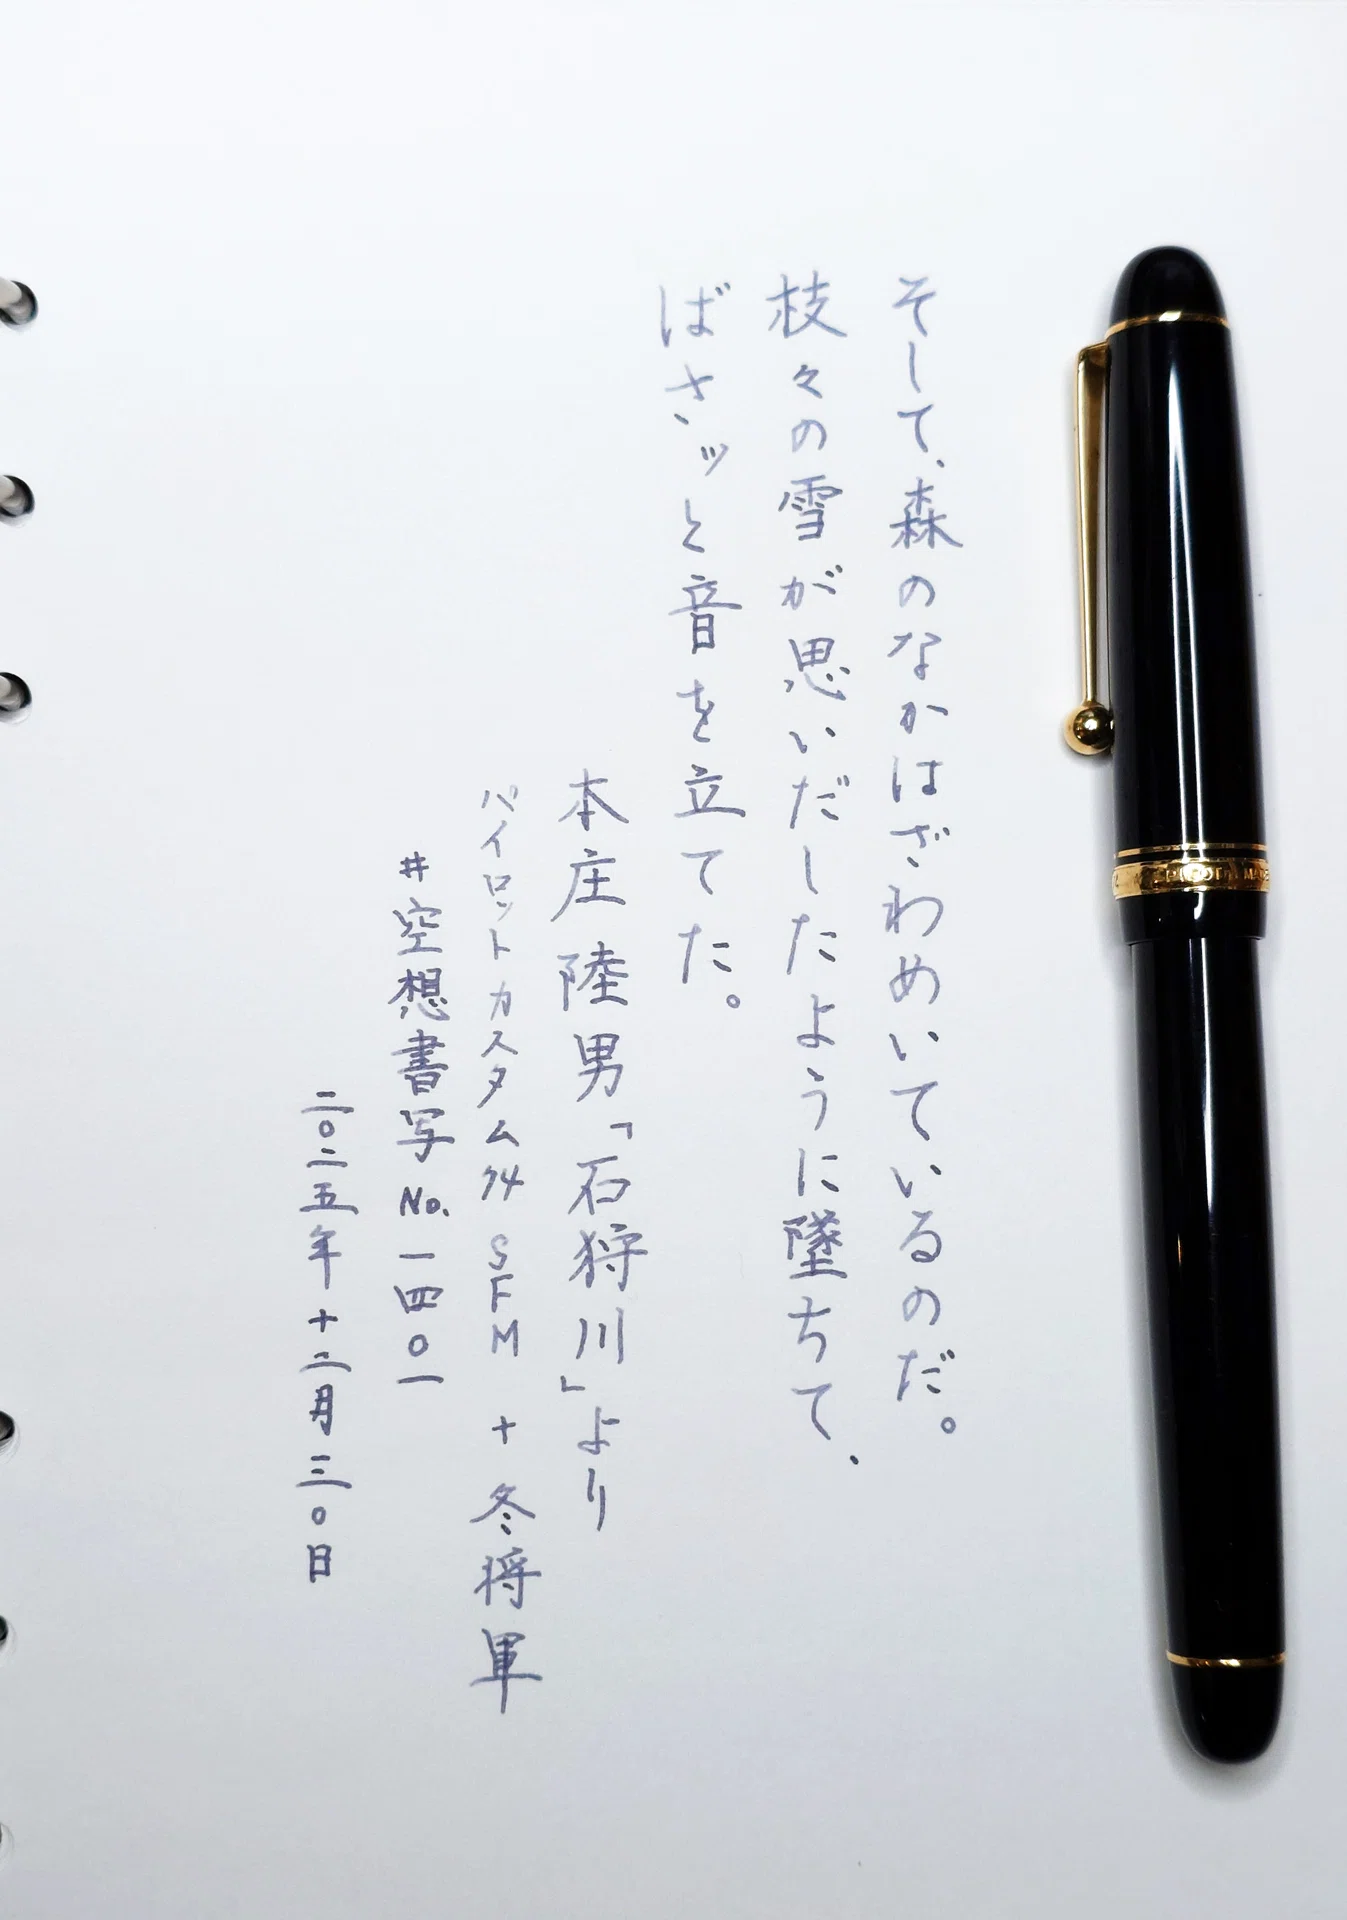 そして、森のなかはざわめいているのだ。
枝々の雪が思いだしたように墜ちて、
ばさッと音を立てた。
本庄陸男「石狩川」より
パイロットカスタム74 SFM + 冬将軍
#空想書写 No.一四〇一
二〇二五年十二月三〇日